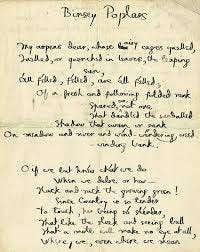 Binsey Poplars
My aspens dear, whose airy cages quelled,
Quelled, or quenched in leaves, the leaping
sun,
All felled, felled, are all felled,
Of a fresh and following folded rank
Spared, not one
That dandled the sandalled
Shadow that swam or sank
On meadow and river and wind-wandering weed-
winding bank.
O if we but knew what we do
When we delve or hew
Hack and rack the growing green!
Since Country is so tender
To touch, her being so slender,
That, like this sleek and seeing ball
will make no eye at all,
Where we, even where we mean